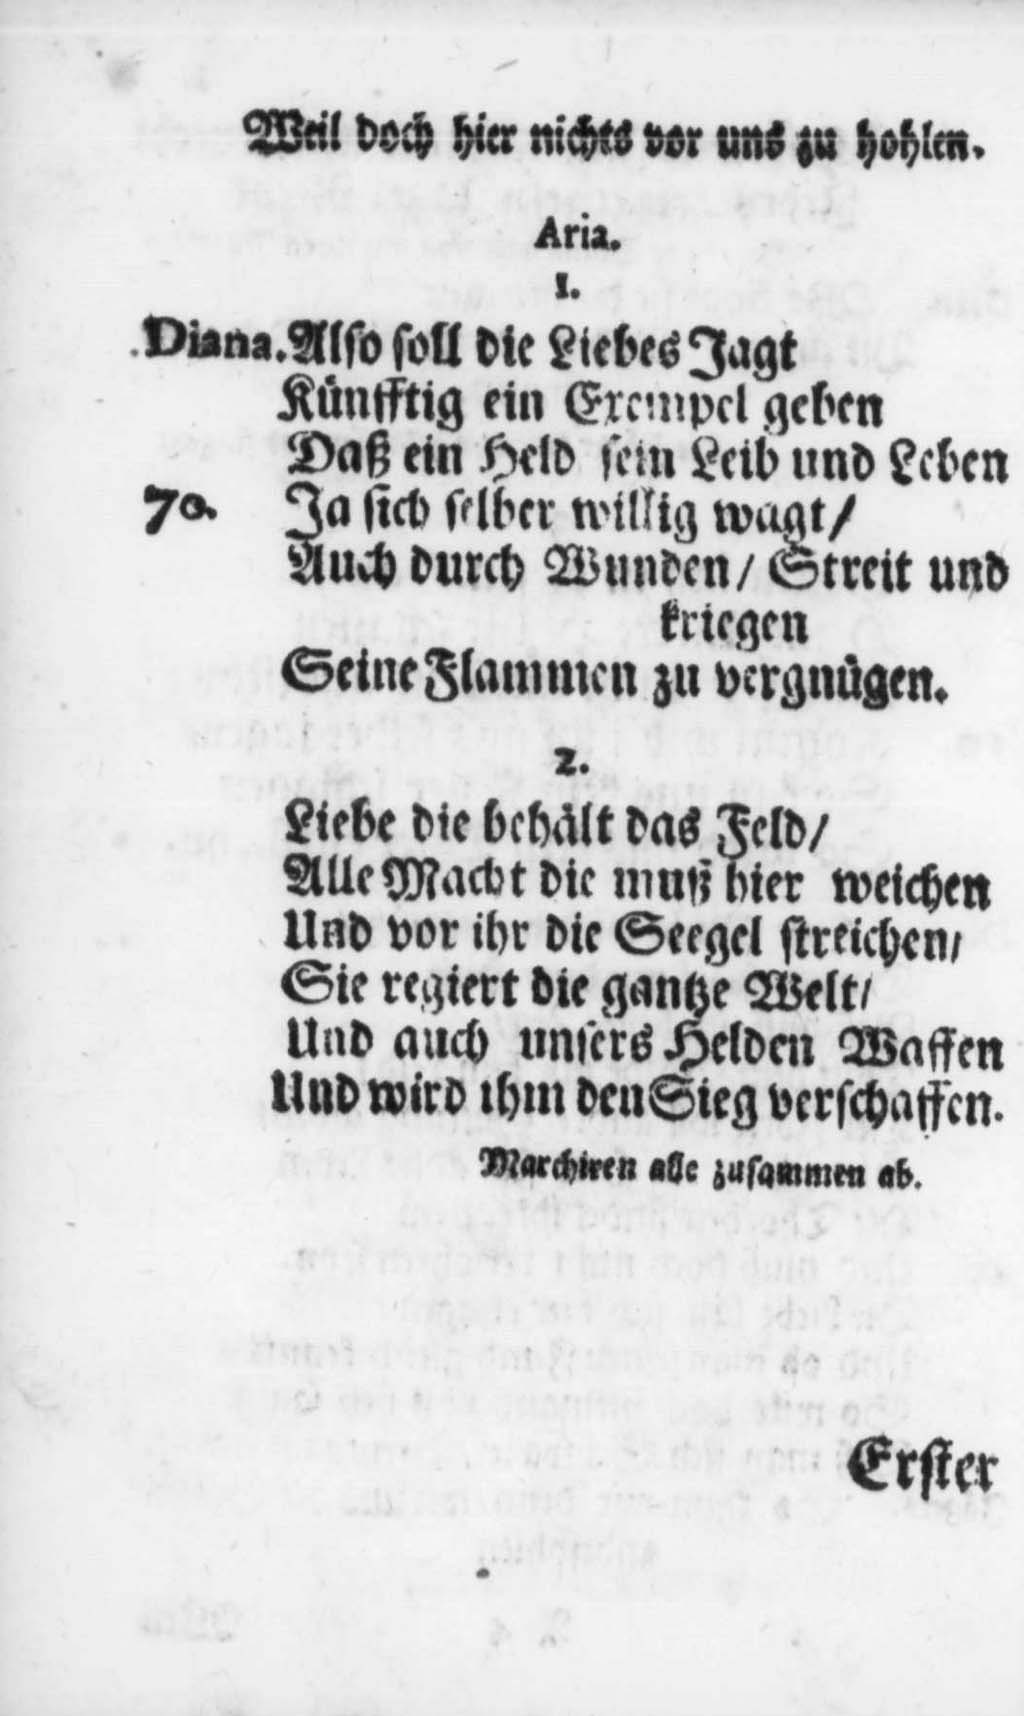 Weil doch hier nichts vor uns zu hohlen.
Aria.
1.
Diana. Also soll die Liebes Jagt
Künfftig ein Exempel geben
Daß ein Held sein Leib und Leben
70. Ja sich selber willig wagt/
Auch durch Wunden/ Streit und
kriegen
Seine Flammen zu vergnügen.
2.
Liebe die behält das Feld/
Alle Macht die muß hier weichen
Und vor ihr die Seegel streichen/
Sie regiert die gantze Welt/
Und auch unsers Helden Waffen
Und wird ihm den Sieg verschaffen.
Marchiren alle zusammen ab.
Erster